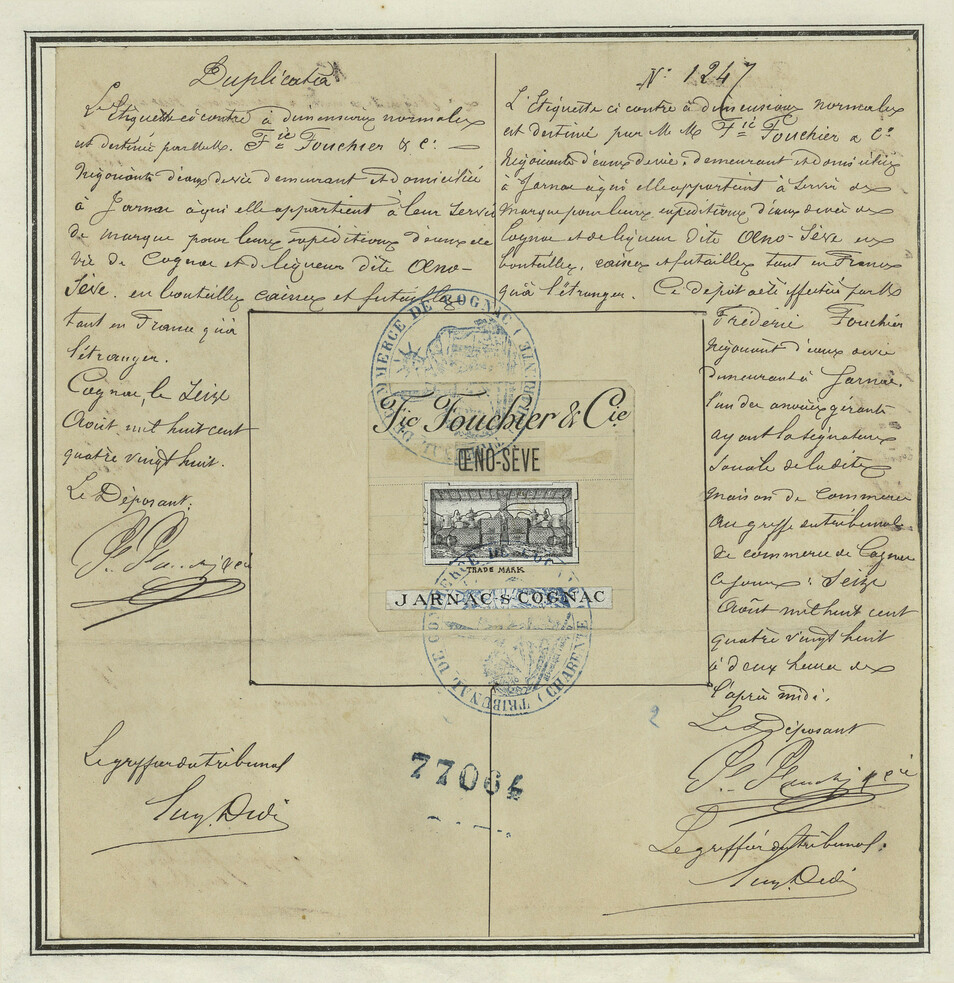 Duplicata
L'Etiquette ci contre à dimensions normales
est destiné par M.M. Fic Fouchier & Cie
Négociants d'eaux de vie demeurant et domiciliés
à Jarnac à qui elle appartient à leur servir
de marque pour leurs expéditions d'eaux de
vie de Cognac et de liqueurs dite Œno-
Sève. en bouteilles caisses et futailles
tant en France qu'à
l'étranger.
Cognac, le Seize
Août mil huit cent
quatre vingt huit.
Le Déposant:
Le greffier du tribunal
N° 1247
L'Etiquette ci contre à dimensions normales
est destiné par M M Fic Fouchier & Cie
Négociants d'eaux de vie, demeurant et domiciliés
à Jarnac à qui elle appartient à servir de
marque pour leurs expéditions d'eaux de vie de
Cognac et de liqueur dite Œno-Sève en
bouteilles, caisses et futailles tant en France
qu'à l'étranger. Ce dépôt a été effectué par M
Frédéric Fouchier
Négociant d'eaux de vie
demeurant à Jarnac.
l'un des associés gérants
ayant la signature
sociale de la dite
maison de commerce
au greffe du tribunal
de commerce de Cognac
ce jour: Seize
Août mil huit cent
quatre vingt huit
à deux heures de
l'après midi.
Le Déposant
Le greffier du tribunal:
TRIBUNAL DE COMMERCE DE COGNAC (CHARENTE)
Fic Fouchier & Cie
ŒNO-SÈVE
TRADE MARK
JARNAC-S-COGNAC
TRIBUNAL DE COMMERCE DE COGNAC (CHARENTE)
2
77064